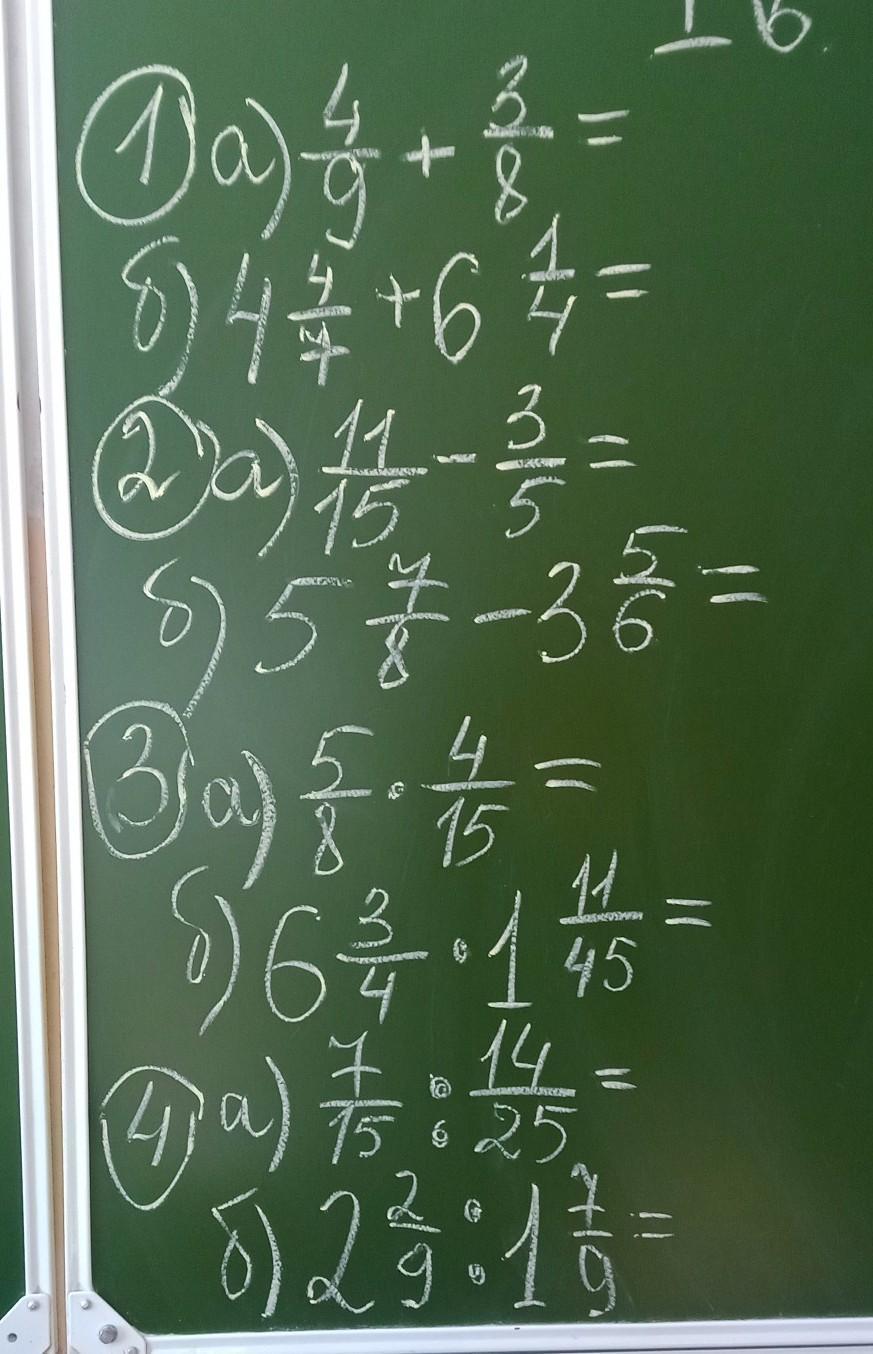 1 а) 4/9 + 3/8 =
б) 4 4/7 + 6 1/4 =
2 а) 11/15 - 3/5 =
б) 5 7/8 - 3 5/6 =
3 а) 5/8 · 4/15 =
б) 6 3/4 · 1 11/45 =
4 а) 7/15 : 14/25 =
б) 2 2/9 : 1 7/9 =